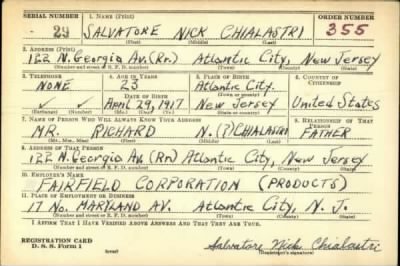 SERIAL NUMBER 1. NAME (Print) ORDER NUMBER
29 SALVATORE NICK CHIALASTRI 355
(First) (Middle) (Last)
2. ADDRESS (Print)
122 N. Georgia Av. (Rr.) Atlantic City, New Jersey
(Number and street or R. F. D. number) (Town) (County) (State)
3. TELEPHONE 4. AGE IN YEARS 5. PLACE OF BIRTH 6. COUNTRY OF CITIZENSHIP
NONE 23 Atlantic City.
DATE OF BIRTH (Town or county)
April 29, 1917 New Jersey United States
(Exchange) (Number) (Mo.) (Day) (Yr.) (State or country)
7. NAME OF PERSON WHO WILL ALWAYS KNOW YOUR ADDRESS 8. RELATIONSHIP OF THAT PERSON
MR. RICHARD N. (P) CHIALASTRI FATHER
(Mr., Mrs., Miss) (First) (Middle) (Last)
9. ADDRESS OF THAT PERSON
122 N. Georgia Av. (Rr) Atlantic City, New Jersey
(Number and street or R. F. D. number) (Town) (County) (State)
10. EMPLOYER'S NAME
FAIRFIELD CORPORATION (PRODUCTS)
11. PLACE OF EMPLOYMENT OR BUSINESS
17 No. MARYLAND AV. Atlantic City, N. J.
(Number and street or R. F. D. number) (Town) (County) (State)
I AFFIRM THAT I HAVE VERIFIED ABOVE ANSWERS AND THAT THEY ARE TRUE.
REGISTRATION CARD
D. S. S. Form 1 (over) Salvatore Nick Chialastri
(Registrant's signature)